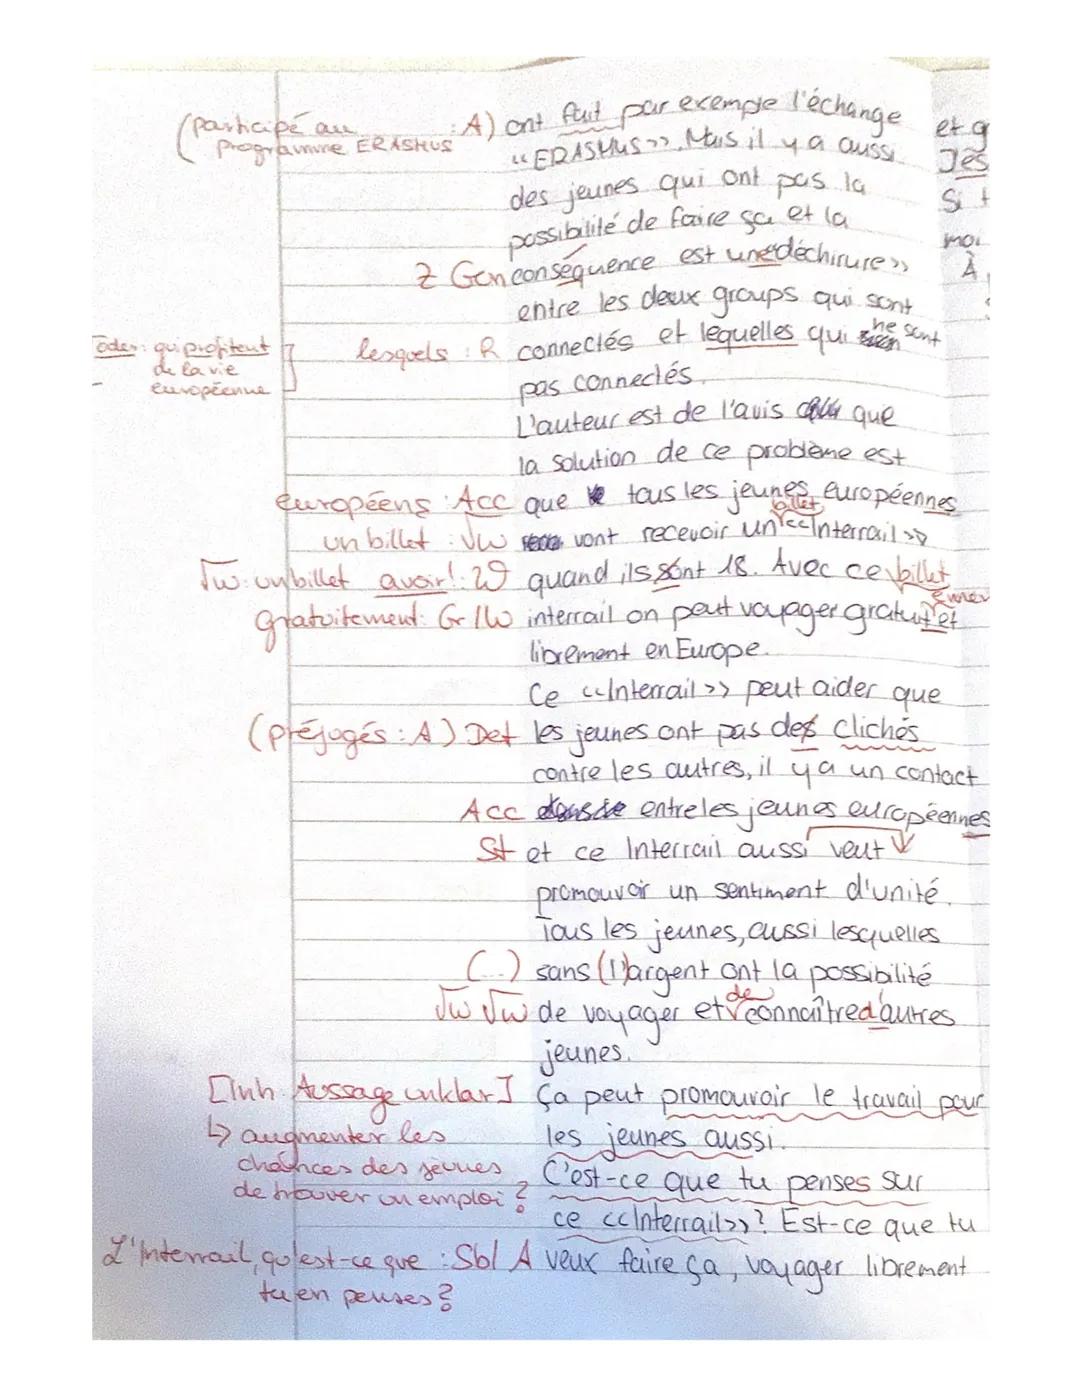 (participé au : A) ont fait par exemple l'échange
programme ERASMUS «ERASMUS». Mais il y a aussi
des jeunes qui ont pas la
possibilité de faire ça et la
Z Gen conséquence est une «déchirure»
entre les deux groups qui sont
oder: qui profitent lesquels : R connectés et lequelles qui ne sont
de la vie pas connectés.
européenne
L'auteur est de l'avis que
la solution de ce problème est
européens : Acc que tous les jeunes européennes
un billet : √w vont recevoir un billet «Interrail»
√w: un billet avoir!: W quand ils sont 18. Avec ce billet
gratuitement: Gr/W interrail on peut voyager gratuit et
librement en Europe.
Ce «Interrail» peut aider que
(préjugés : A) Det les jeunes ont pas des clichés
contre les autres, il y a un contact
Acc entre les jeunes européennes
St et ce Interrail aussi veut
promouvoir un sentiment d'unité.
Tous les jeunes, aussi lesquelles
(...) sans (l')argent ont la possibilité
√w √w de voyager et de connaître d'autres
jeunes.
[Inh. Aussage unklar] Ça peut promouvoir le travail pour
↳ augmenter les les jeunes aussi.
chances des jeunes C'est-ce que tu penses sur
de trouver un emploi? ce «Interrail»? Est-ce que tu
L'Interrail, qu'est-ce que : Sbl A veux faire ça, voyager librement
tu en penses?
et g
Jes
Si t
moi
À